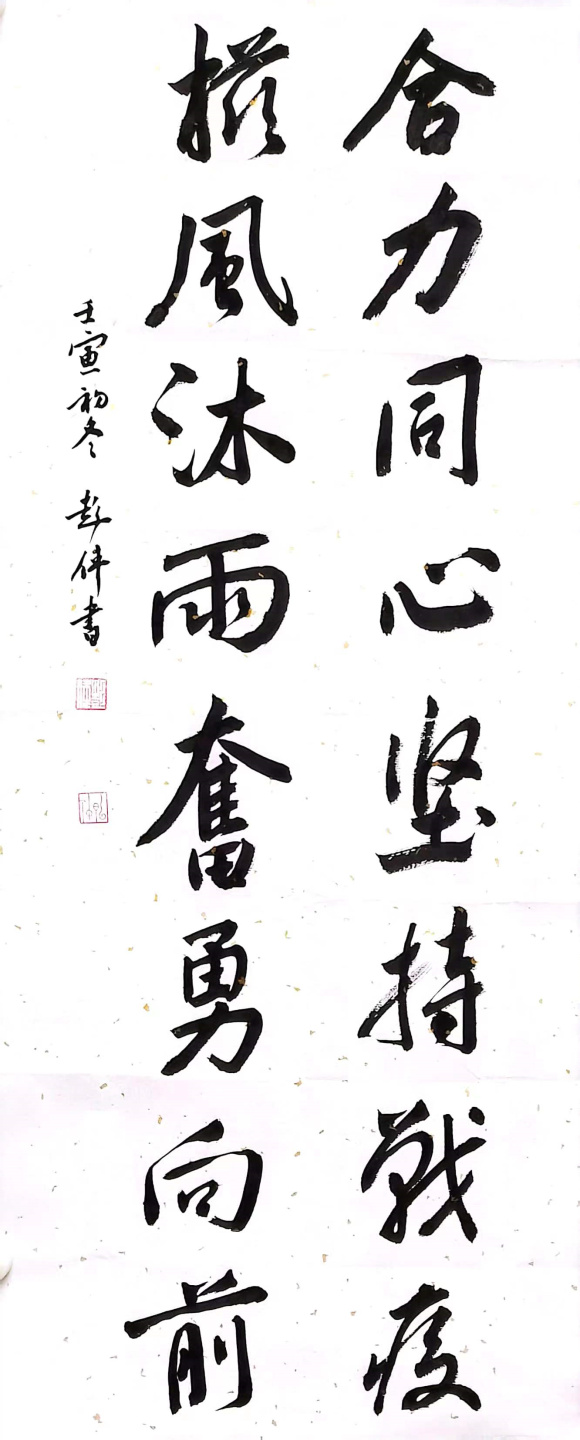 合力同心坚持戰疫
櫛風沐雨奮勇向前
壬寅初冬 彭伟書